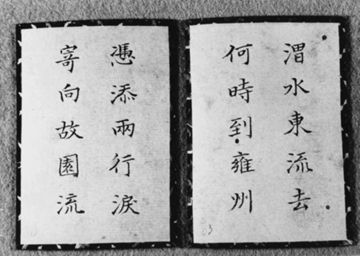 渭水東流去
何時到雍州
憑添兩行淚
寄向故園流